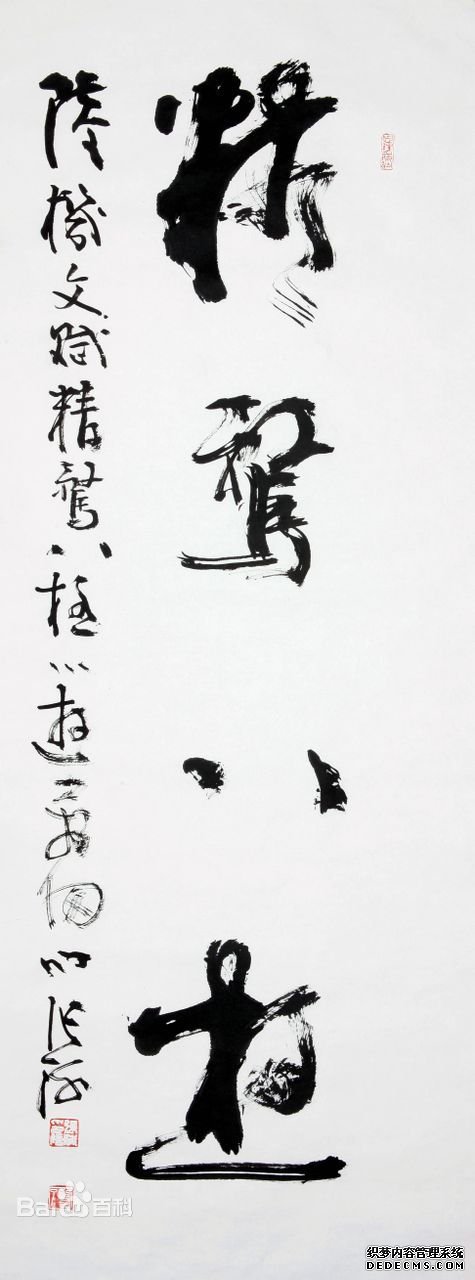 精騖八極
陸機文賦精騖八極心遊
Baidu百科
织梦内容管理系统
DEDECMS.COM